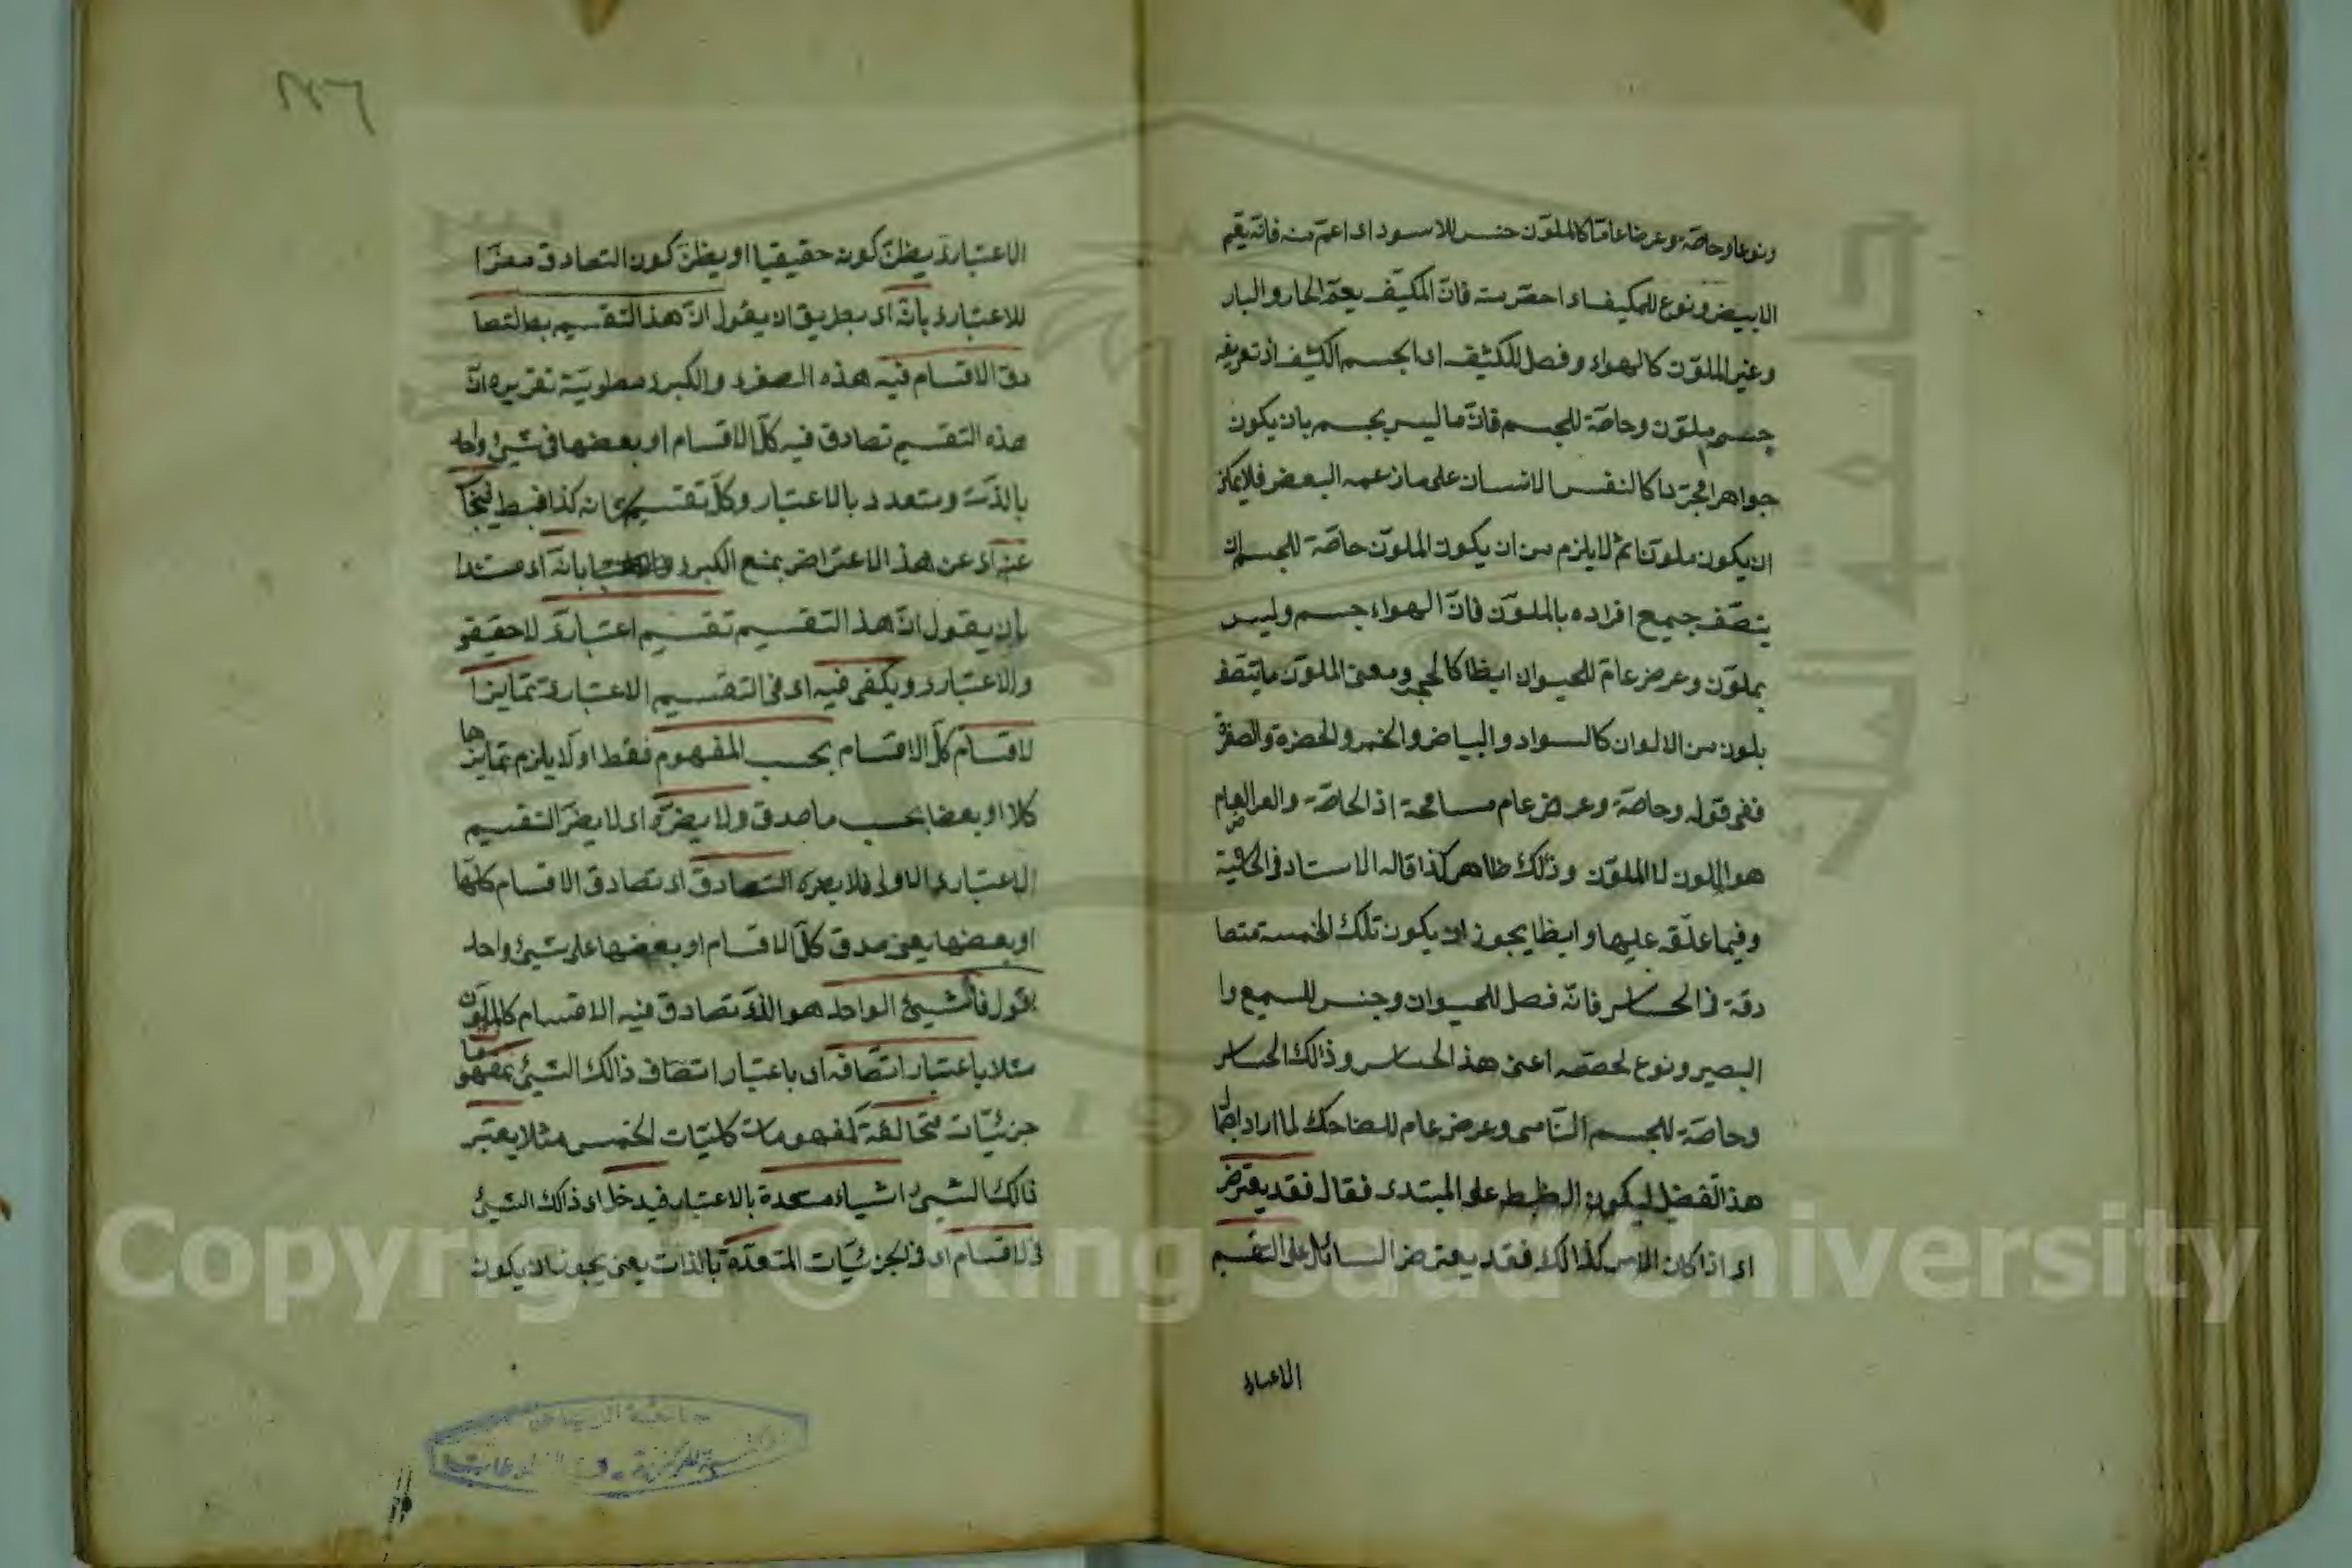 ونوعا وخاصّة وعرضا عامّا كالملوّن جنس للاسود اى اعمّ منه فانّه يعمّ
الابيض ونوع للمكيف اى اخصّ منه فانّ المكيّف يعمّ الحار والبار
وغير الملوّن كالهواء وفصل للكثيف اى الجسم الكثيف اذ تعريفه
جسم ملوّن وخاصّة للجسم فانّ ما ليس بجسم بان يكون
جواهرا مجرّدا كالنفس الانسان على ما زعمه البعض فلا يمكن
ان يكون ملوّنا ثم لا يلزم من ان يكون الملوّن خاصّة للجسم ان
يتصّف جميع افراده بالملوّن فانّ الهواء جسم وليس
بملوّن وعرض عامّ للحيوان ايظا كالحجر ومعنى الملوّن ما يتّصف
بلون من الالوان كالسواد والبياض والخمر والحضرة والصفرة
ففى قوله وخاصّة وعرض عام مسامحة اذ الخاصّة والعرض العام
هو اللون لا الملوّن وذلك ظاهر كذا قاله الاستاد فى الحاشية
وفيما علّقه عليها وايظا يجوز ان يكون تلك الخمسة متصا
دقة فى الحساس فانّه فصل للحيوان وجنس للسميع وا
البصير ونوع لحصّصه اعنى هذ الحساس وذالك الحساس
وخاصّة للجسم النّامى وعرض عام للضاحك لما اراد ايضا
هذ التفضل ليكون الظبط على المبتدى فقال فقد يعترض
اى اذا كان الامر كذالك فقد يعترض السائل على التقسيم
الاعتبارى
الاعتبارىّ يظنّ كونه حقيقيا او يظنّ كون التصادق مضرّا
للاعتبارى بانّه اى بطريق ان يقول انّ هذ التقسيم بط التصا
دق الاقسام فيه هذه الصغرى والكبرى مطوية تقريره انّ
هذه التقسيم تصادق فيه كلّ الاقسام او بعضها فى شيئ واحد
بالذّات ومتعدد بالاعتبار وكلّ تقسيم شانه كذا فبط فيجاب
عنه اى عن هذ الاعتراض بمنع الكبرى بانّه اى مستندا
بان يقول انّ هذ التقسيم تقسيم اعتبارىّ لا حقيقى
والاعتبارى ويكفى فيه اى فى التقسيم الاعتبارىّ تمايز ا
لاقسام كلّ الاقسام بحسب المفهوم فقط او لا يلزم تمايزها
كلا او بعضا بحسب ما صدق ولا يضرّه اى لا يضرّ التقسيم
الاعتبارى الاولى فلا يضره التصادق اى تصادق الاقسام كلّها
او بعضها يعنى صدق كلّ الاقسام او بعضها على شيئ واحد
بقول فالشيئ الواحد هو الذى تصادق فيه الاقسام كالملوّن
مثلا باعتبار اتّصافه اى باعتبار اتصاف ذالك الشيئ بمفهوما
جزئيّات متخالفة كمفهومات كليّات الخمس مثلا يعتبر
ذالك الشيئ اشياء متعددة بالاعتبار فيدخل اى ذالك الشيئ
فى الاقسام اى فى الجزئيّات المتعدّدة بالذات يعنى يجوز ان يكون
جامعة الرياض
Copyright © King Saud University